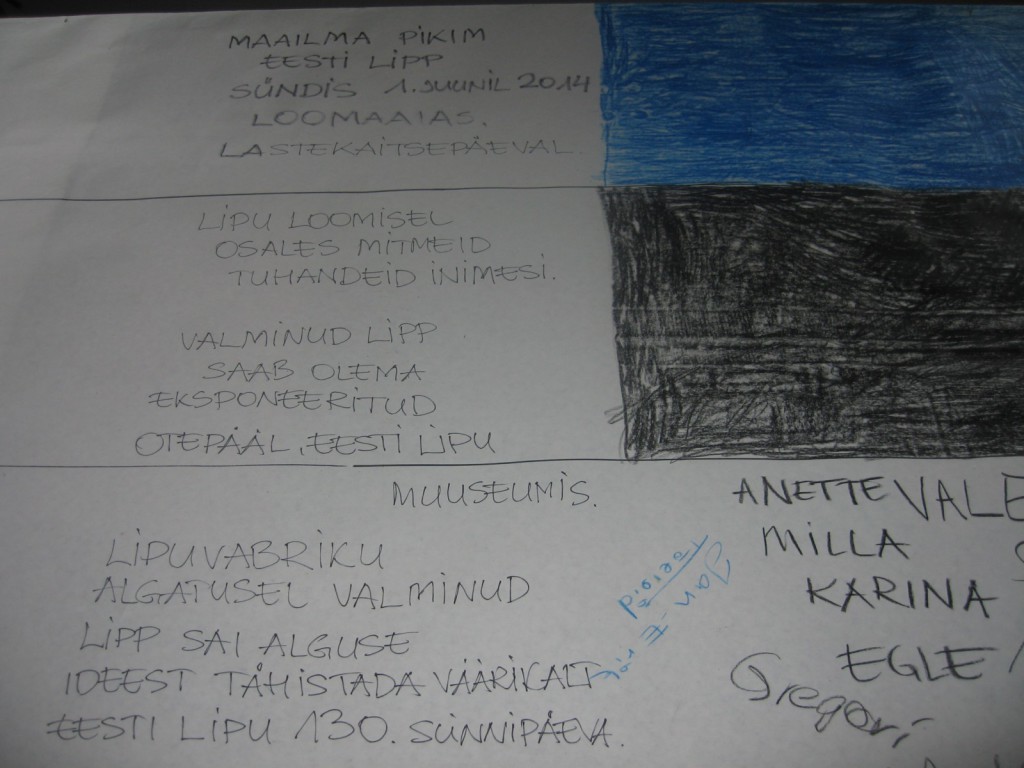 MAAILMA PIKIM
EESTI LIPP
SÜNDIS 1. JUUNIL 2014
LOOMAAIAS.
LASTEKAITSEPÄEVAL.
LIPU LOOMISEL
OSALES MITMEID
TUHANDEID INIMESI.
VALMINUD LIPP
SAAB OLEMA
EKSPONEERITUD
OTEPÄÄL, EESTI LIPU
MUUSEUMIS.
LIPUVABRIKU
ALGATUSEL VALMINUD
LIPP SAI ALGUSE
IDEEST TÄHISTADA VÄÄRIKALT
EESTI LIPU 130. SÜNNIPÄEVA.
ANETTE
MILLA
KARINA
EGLE
Gregor